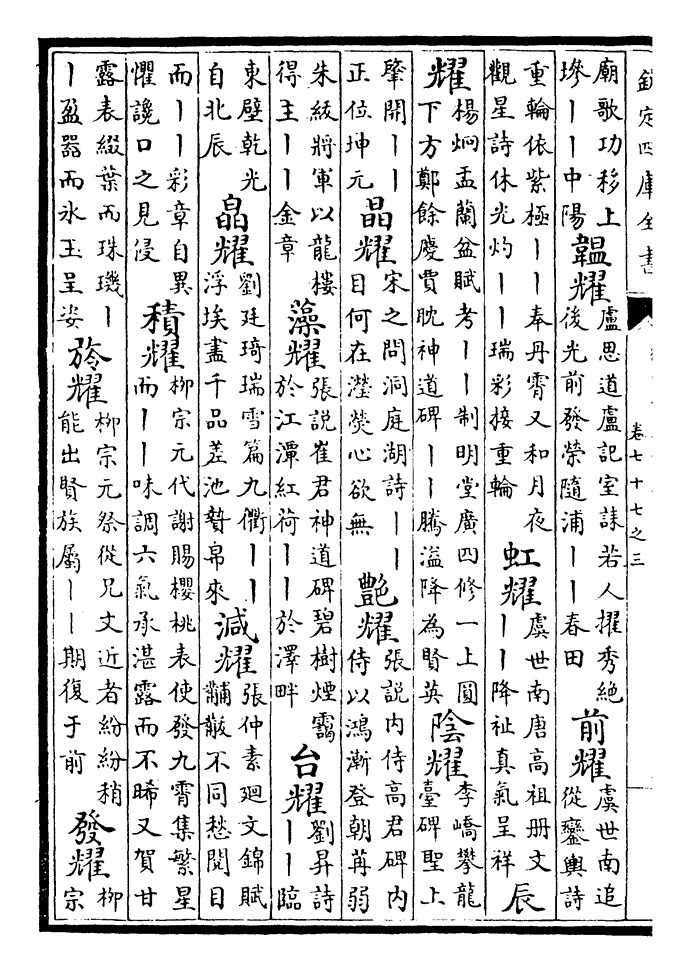 欽定四庫全書
卷七十七之三
廟歌功移上
墋丨丨中陽
韞耀
盧思道盧記室誄若人擢秀絕
後光前發榮隨浦丨丨春田
前耀
虞世南追
從鑾輿詩
重輪依紫極丨丨奉丹霄又和月夜
觀星詩休光灼丨丨瑞彩接重輪
虹耀
虞世南唐高祖册文
丨丨降祉真氣呈祥
辰
耀
楊炯盂蘭盆賦考丨丨制明堂廣四修一上圓
下方鄭餘慶賈耽神道碑丨丨騰溢降為賢英
陰耀
李嶠攀龍
臺碑聖上
肇開丨丨
正位坤元
晶耀
宋之問洞庭湖詩丨丨
目何在瀅熒心欲無
艷耀
張説内侍高君碑内
侍以鴻漸登朝苒弱
朱紱將軍以龍樓
得主丨丨金章
藻耀
張説崔君神道碑碧樹煙靄
於江潭紅荷丨丨於澤畔
台耀
劉昇詩
丨丨臨
東壁乾光
自北辰
皛耀
劉廷琦瑞雪篇九衢丨丨
浮埃盡千品差池贄帛來
減耀
張仲素廻文錦賦
黼黻不同愁閲目
而丨丨彩章自異
懼讒口之見侵
積耀
柳宗元代謝賜櫻桃表使發九霄集繁星
而丨丨味調六氣承湛露而不晞又賀甘
露表綴葉而珠璣丨
丨盈器而氷玉呈姿
旍耀
柳宗元祭從兄文近者紛紛稍
能出賢族屬丨丨期復于前
發耀
柳
宗